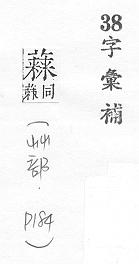 38字彙補
同
(艸部. P184)